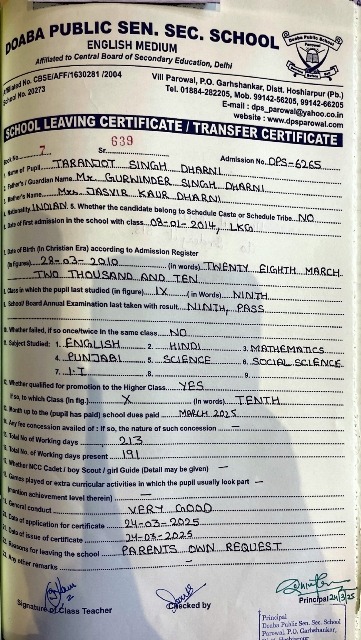 DOABA PUBLIC SEN. SEC. SCHOOL
ENGLISH MEDIUM
Affiliated to Central Board of Secondary Education, Delhi
Affiliated No. CBSE/AFF/1630281 /2004
School No. 20273
Vill Parowal, P.O. Garhshankar, Distt. Hoshiarpur (Pb.)
Tel. 01884-282205, Mob. 99142-56205, 99142-66205
E-mail : dps_parowal@yahoo.co.in
website : www.dpsparowal.com
SCHOOL LEAVING CERTIFICATE / TRANSFER CERTIFICATE
Book No. 7 Sr. 639 Admission No. DPS-6265
Name of Pupil TARANJOT SINGH DHARNI
Father's / Guardian Name Mr. GURWINDER SINGH DHARNI
Mother's Name Mrs. JASVIR KAUR DHARNI
Nationality INDIAN 5. Whether the candidate belong to Schedule Caste or Schedule Tribe NO
Date of first admission in the school with class 08-01-2014, LKG
Date of Birth (In Christian Era) according to Admission Register
(In figures) 28-03-2010 (in words) TWENTY EIGHTH MARCH
TWO THOUSAND AND TEN
Class in which the pupil last studied (in figure) IX (in Words) NINTH
School/ Board Annual Examination last taken with result NINTH, PASS
Whether failed, if so once/twice In the same class NO
Subject Studied: 1. ENGLISH 2. HINDI 3. MATHEMATICS
4. PUNJABI 5. SCIENCE 6. SOCIAL SCIENCE
7. I.T 8. 9.
Whether qualified for promotion to the Higher Class YES
If so, to which Class (in fig.) X (In words) TENTH
Month up to the (pupil has paid) school dues paid MARCH 2025
Any fee concession availed of : If so, the nature of such concession —
Total No of Working days 213
Total No. of Working days present 191
Whether NCC Cadet / boy Scout / girl Guide (Detail may be given) —
Games played or extra curricular activities in which the pupil usually took part —
(mention achievement level therein) —
General conduct VERY GOOD
Date of application for certificate 24-03-2025
Date of issue of certificate 24-03-2025
Reasons for leaving the school PARENTS OWN REQUEST
Any other remarks —
Signature of Class Teacher Checked by Principal 24/3/25
Principal
Doaba Public Sen. Sec. School
Parowal, P.O. Garhshankar,